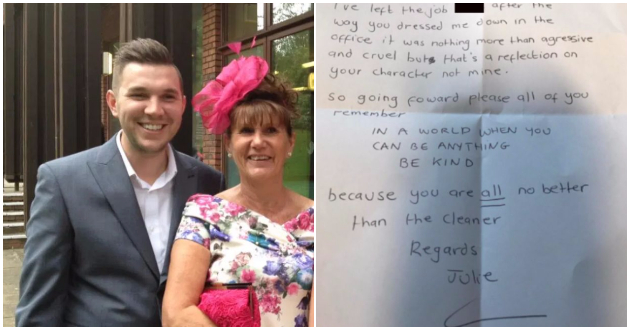 I've left the job after the
way you dressed me down in the
office it was nothing more than agressive
and cruel but that's a reflection on
your character not mine.
So going foward please all of you
remember
IN A WORLD WHEN YOU
CAN BE ANYTHING
BE KIND
because you are all no better
than the cleaner
Regards
Julie